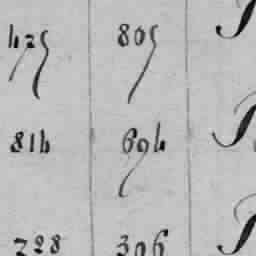 425 805
814 694
228 306